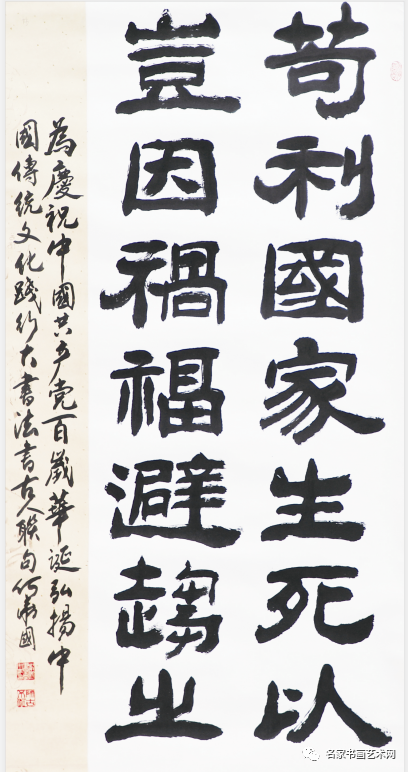 苟利國家生死以
豈因禍福避趨之
為慶祝中國共产党百歲華诞弘揚中
國傳統文化踐行大書法書古人聯句
名家书画艺术网